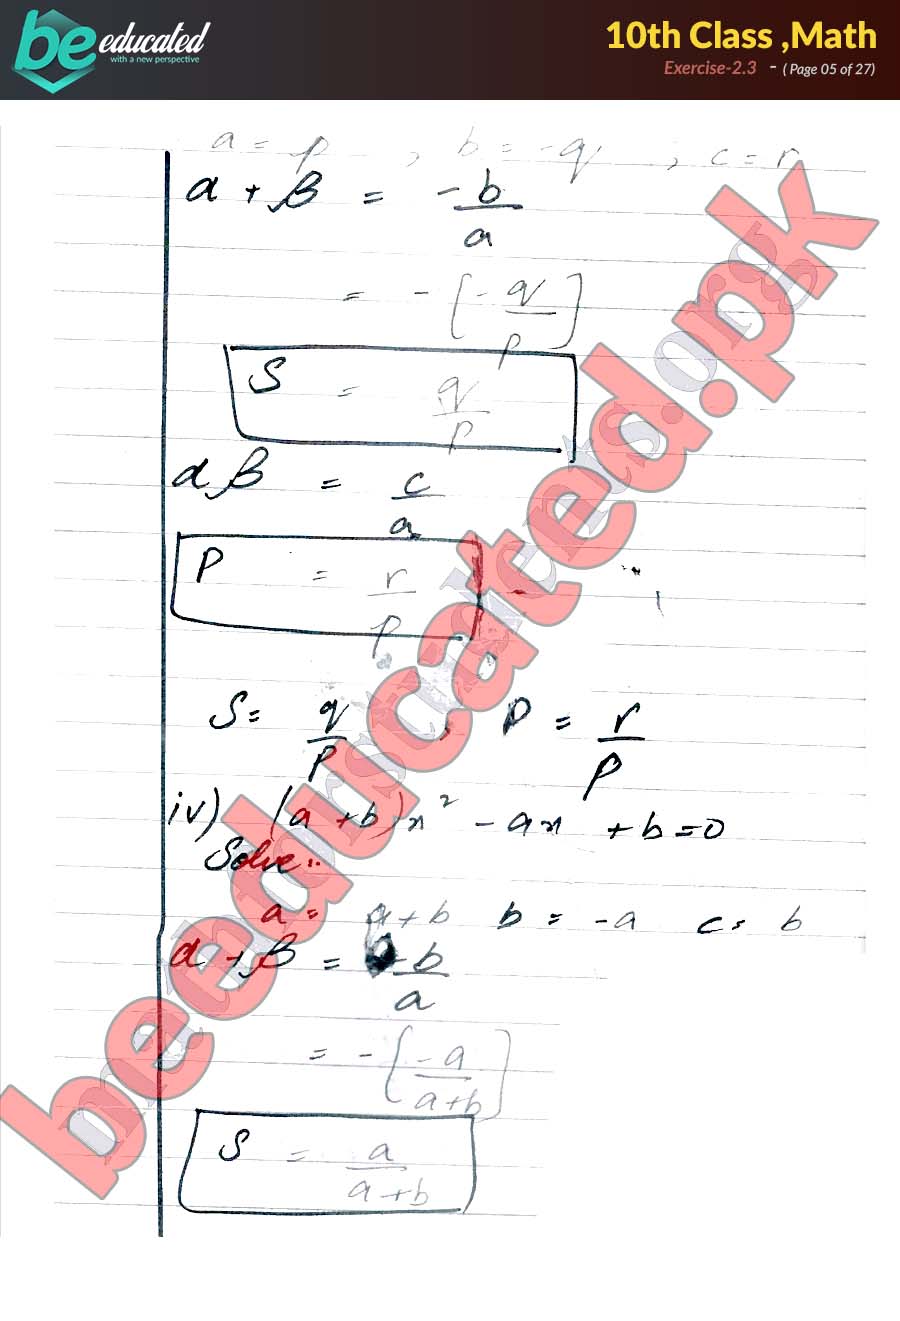 be educated
with a new perspective
10th Class ,Math
Exercise-2.3 - ( Page 05 of 27)
a = p , b = -q ; c = r
α + β = -b/a
= -[-q/p]
S = q/p
αβ = c/a
P = r/p
S = q/p , P = r/p
iv) (a+b)x² - ax + b = 0
Solve:.
a = a+b b = -a c = b
α + β = -b/a
= -[-a/a+b]
S = a/a+b
beeducated.pk